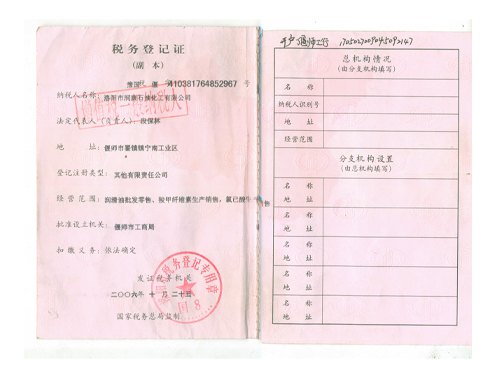 税务登记证
(副 本)
410381764852967 号
纳税人名称:
洛阳市润康石油化工有限公司
法定代表人(负责人): 段保林
地 址: 偃师市翟镇镇宁南工业区
登记注册类型: 其他有限责任公司
经营范围: 润滑油批发零售、羧甲纤维素生产销售,氯乙酸生产销售
批准设立机关: 偃师市工商局
扣缴义务: 依法确定
发证税务机关
二〇〇六年十月二十三
国家税务总局监制
税务登记专用章
开户 偃师工行 1705027009045090147
总机构情况
(由分支机构填写)
名 称
纳税人识别号
地 址
经营范围
分支机构设置
(由总机构填写)
名 称
地 址
名 称
地 址
名 称
地 址
名 称
地 址
名 称
地 址